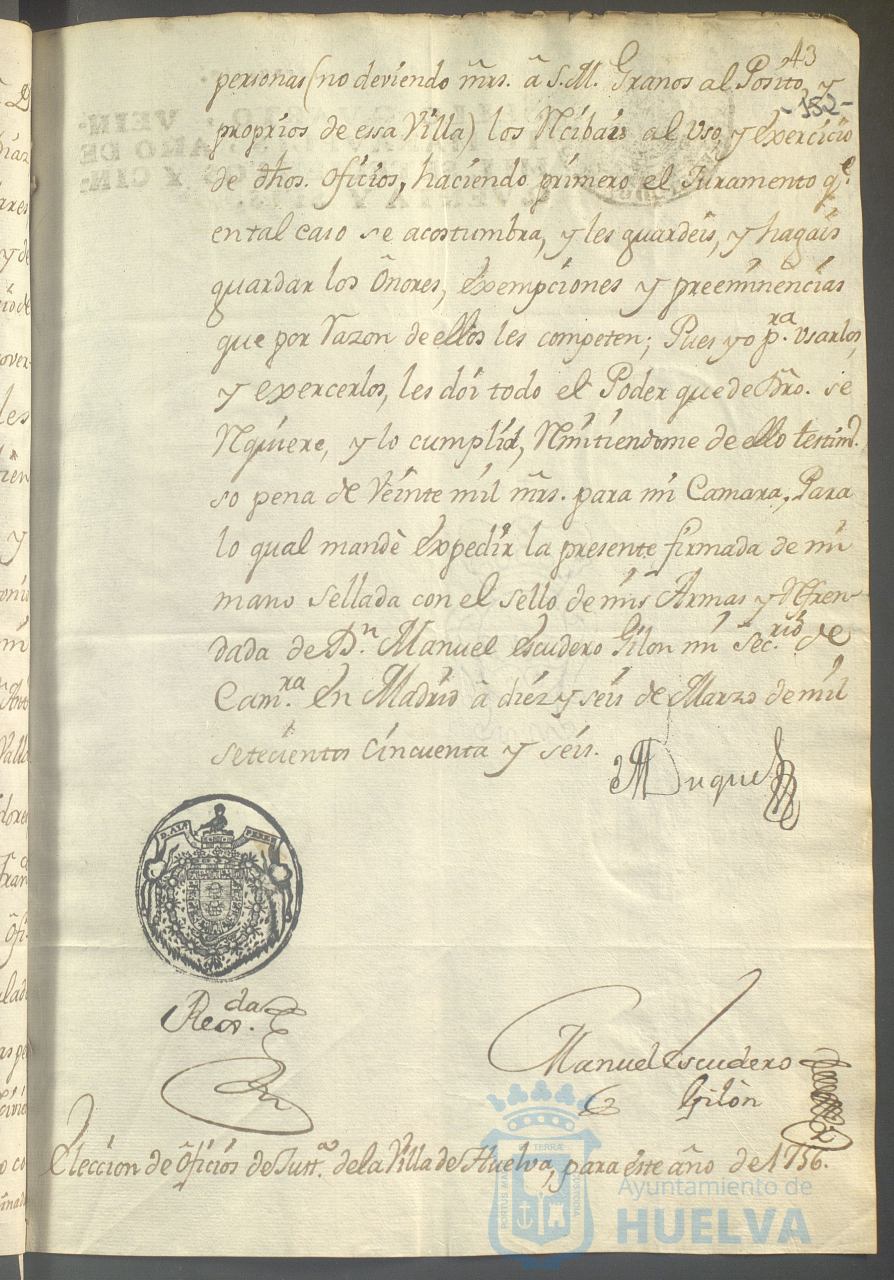 43
-152-
personas (no deviendo mrs. â S.M. Granos al Posito, y
proprios de essa Villa) los Rcibais al Uso, y exercicio
de dhos. oficios, haciendo primero el Juramento q.e
ental caso se acostumbra, y les guardeis, y hagais
guardar los Onores, Exempciones y preeminencias
que por Razon de ellos les competen; Pues yo p.ra Usarlos,
y exercerlos, les doi todo el Poder que de Dro. se
Rquiere, y lo cumplid, Rmitiendome de ello testim.o
so pena de Veinte mil mrs. para mi Camara, Para
lo qual mandè Expedir la presente firmada de mi
mano sellada con el sello de mis Armas y Refren-
dada de D.n Manuel Escudero Gilon mi Sec.rio de
Cam.ra En Madrid â diez y seis de Marzo de mil
setecientos Cincuenta y seis.
El Duque
D. ALF PEREZ
Reg.da
Manuel Escudero
Gilòn
Eleccion de Oficios de Just.a de la Villa de Huelva, para este año de 1756.
Ayuntamiento de
HUELVA